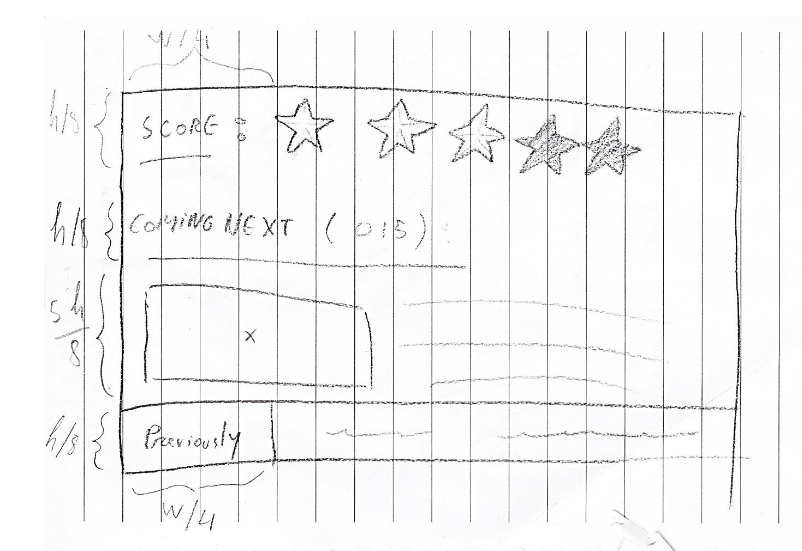 W/4
h/8
SCORE :
h/8
COMING NEXT ( 015 ) :
5h/8
x
h/8
Previously
W/4